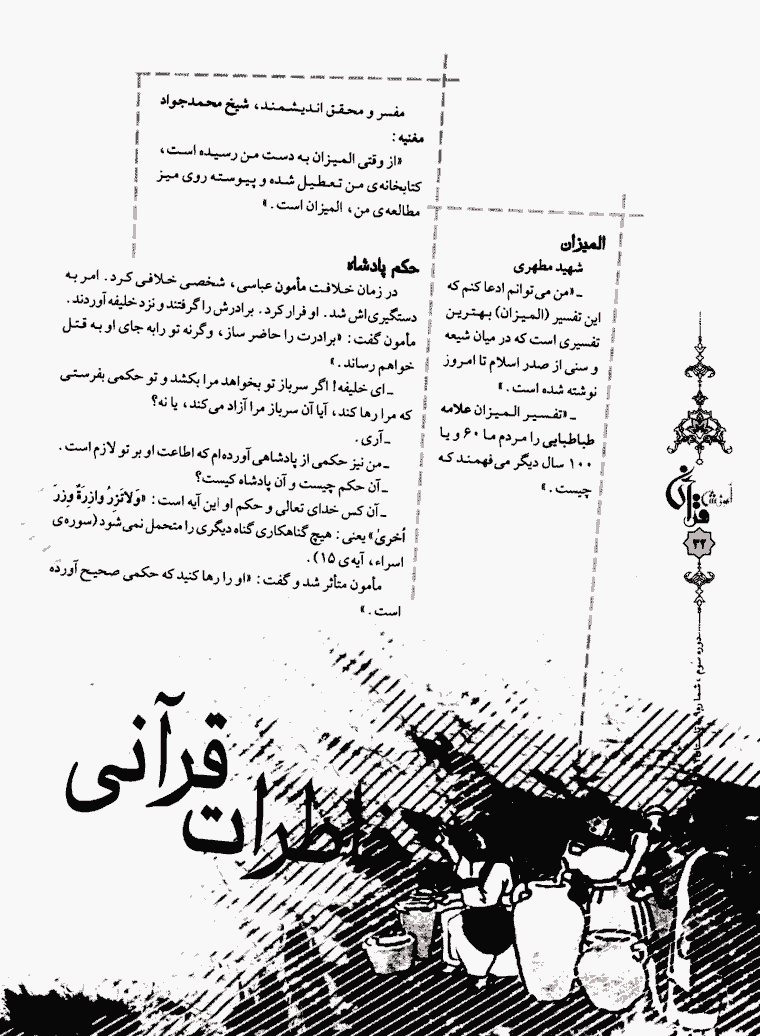 المیزان
شهید مطهری
ـ «من می‌توانم ادعا کنم که
این تفسیر (المیزان) بهترین
تفسیری است که در میان شیعه
و سنی از صدر اسلام تا امروز
نوشته شده است.»
ـ «تفسیر المیزان علامه
طباطبایی را مردم ما ۶۰ و یا
۱۰۰ سال دیگر می‌فهمند که
چیست.»
مفسر و محقق اندیشمند، شیخ محمدجواد
مغنیه:
«از وقتی المیزان به دست من رسیده است،
کتابخانه‌ی من تعطیل شده و پیوسته روی میز
مطالعه‌ی من، المیزان است.»
حکم پادشاه
در زمان خلافت مأمون عباسی، شخصی خلافی کرد. امر به
دستگیری‌اش شد. او فرار کرد. برادرش را گرفتند و نزد خلیفه آوردند.
مأمون گفت: «برادرت را حاضر ساز، وگرنه تو رابه جای او به قتل
خواهم رساند.»
ـ ای خلیفه! اگر سرباز تو بخواهد مرا بکشد و تو حکمی بفرستی
که مرا رها کند، آیا آن سرباز مرا آزاد می‌کند، یا نه؟
ـ آری.
ـ من نیز حکمی از پادشاهی آورده‌ام که اطاعت او بر تو لازم است.
ـ آن حکم چیست و آن پادشاه کیست؟
ـ آن کس خدای تعالی و حکم او این آیه است: «وَلاتَزِرُ وازِرَةٌ وِزرَ
اُخریٰ» یعنی: هیچ گناهکاری گناه دیگری را متحمل نمی‌شود (سوره‌ی
اسراء، آیه‌ی ۱۵).
مأمون متأثر شد و گفت: «او را رها کنید که حکمی صحیح آورده
است.»
آموزش
قرآن
۳۲
دوره سوم، شماره
خاطرات
قرآنی